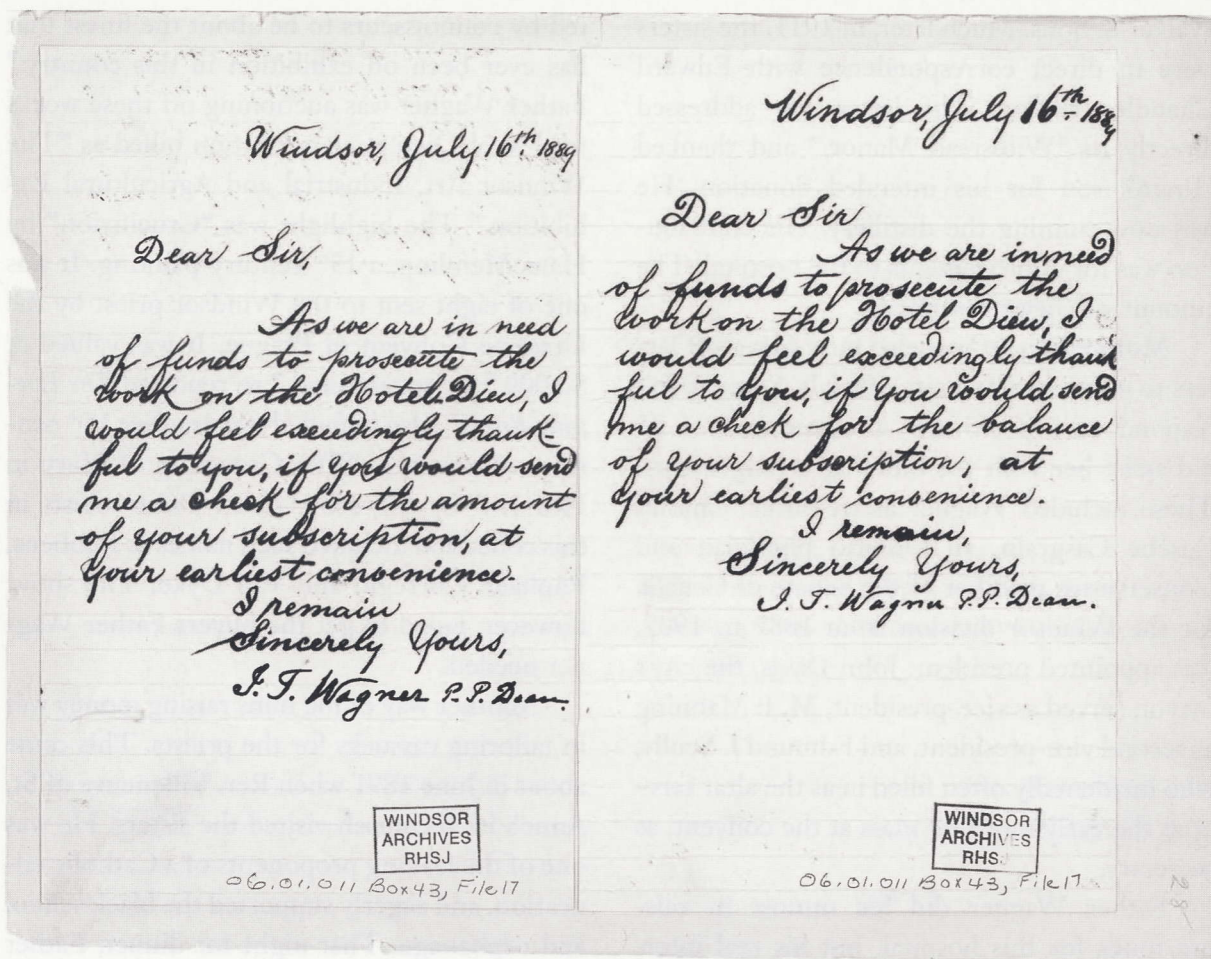 Windsor, July 16th 1889
Dear Sir,
As we are in need
of funds to prosecute the
work on the Hotel Dieu, I
would feel exceedingly thank-
ful to you, if you would send
me a check for the amount
of your subscription, at
your earliest convenience.
I remain
Sincerely Yours,
J. T. Wagner P.P. Dean.
WINDSOR
ARCHIVES
RHSJ
06.01.011 Box 43, File 17
Windsor, July 16th 1889
Dear Sir
As we are in need
of funds to prosecute the
work on the Hotel Dieu, I
would feel exceedingly thank
ful to you, if you would send
me a check for the balance
of your subscription, at
your earliest convenience.
I remain,
Sincerely Yours,
J. T. Wagner P.P. Dean.
WINDSOR
ARCHIVES
RHSJ
06.01.011 Box 43, File 17